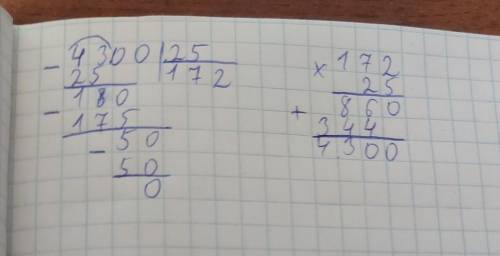 - 4300 | 25
25 172
180
- 175
- 50
50
0
x 172
25
+ 860
344
4300